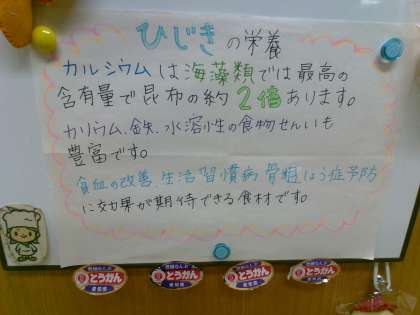 ひじきの栄養
カルシウムは海藻類では最高の
含有量で昆布の約2倍あります。
カリウム、鉄、水溶性の食物せんいも
豊富です。
貧血の改善、生活習慣病、骨粗しょう症予防
に効果が期待できる食材です。
とうかん
とうかん
とうかん
とうかん